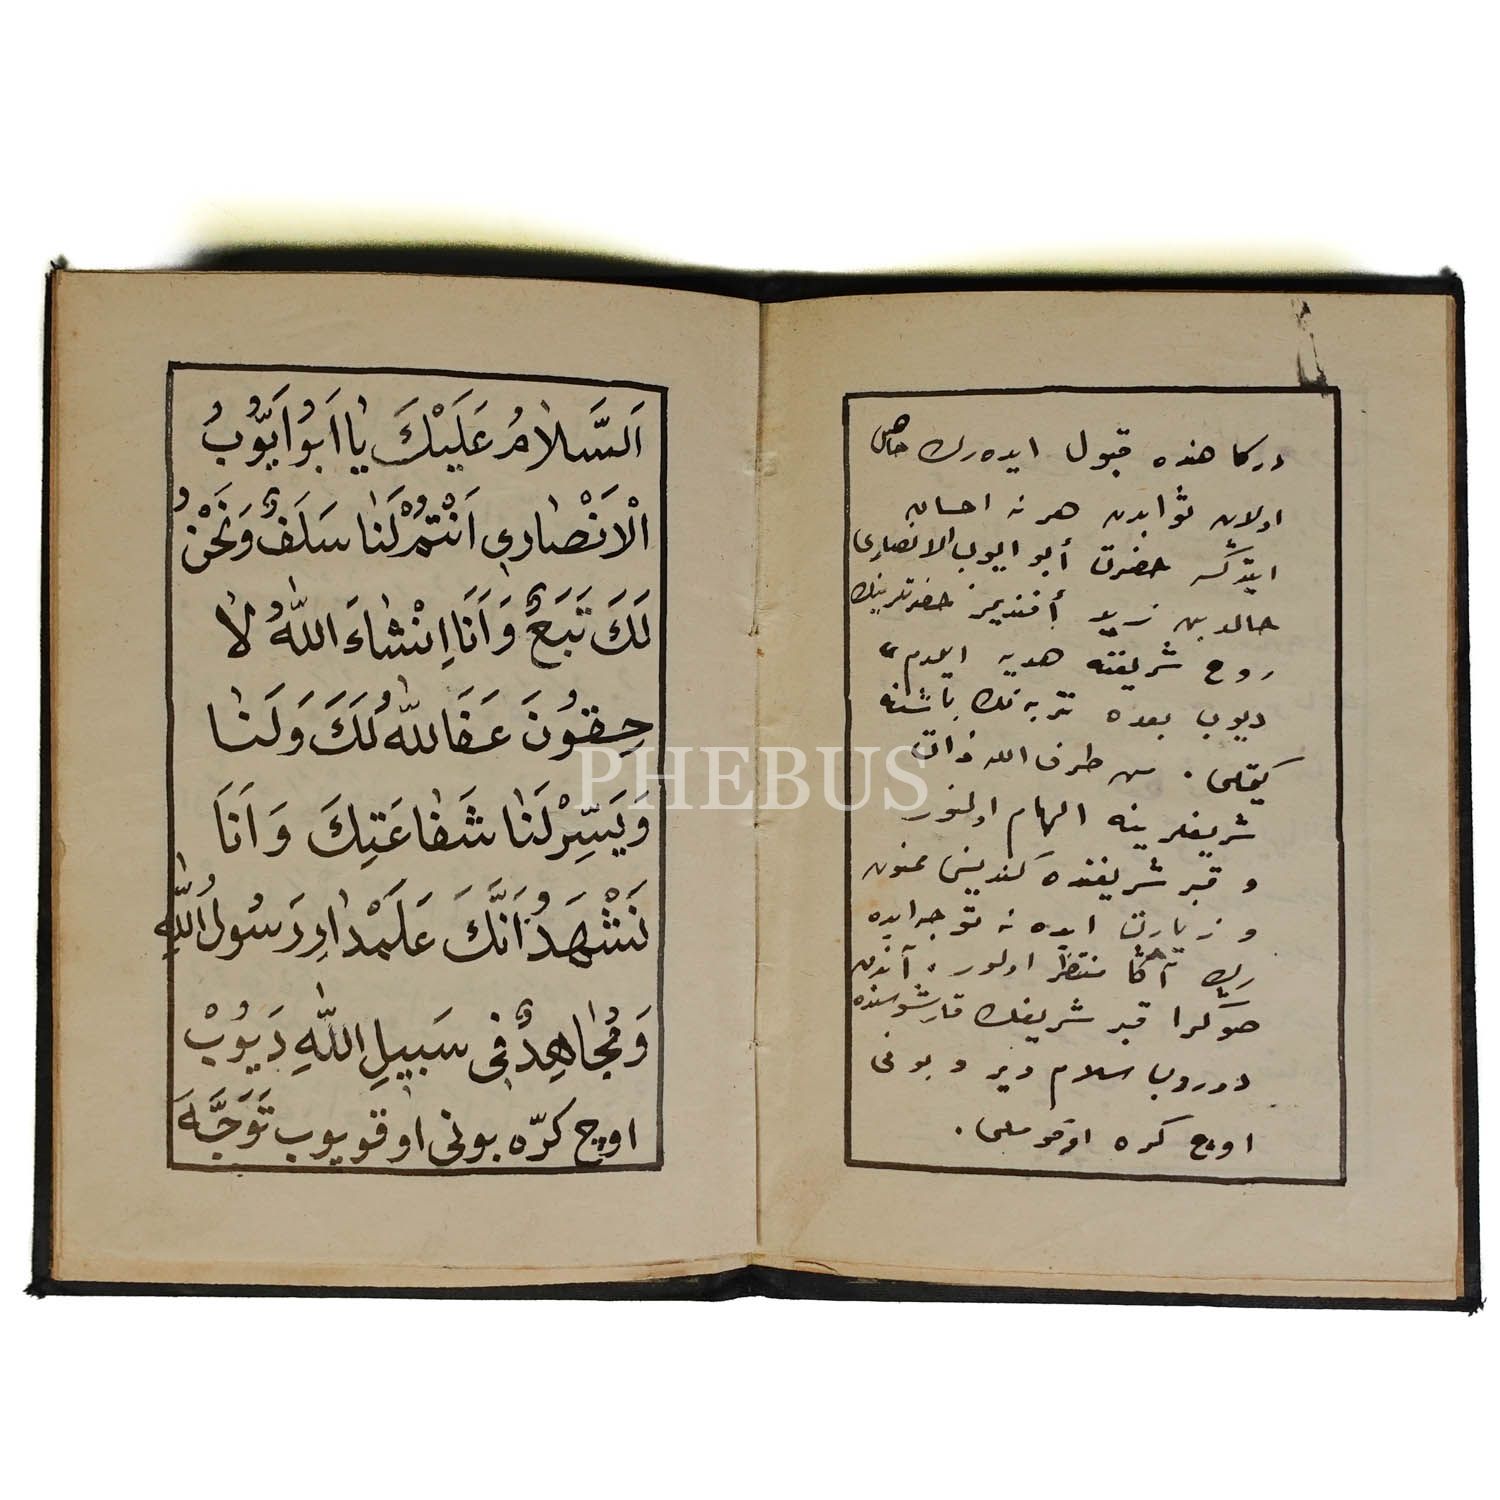 درکاهنده قبول ایده رك حاصل
اولان ثوابدن هر نه احسان
ایتدکسه حضرت أبو ایوب الانصاری
خالد بن زید أفندیمز حضرتلرینك
روح شریفنه هدیه ایلدم
دیوب بعده تربه نك باشنه
کیتملی . من طرف الله ذات
شریفلرینه الهام اولنور
و قبر شریفنده کندیسی ممنون
و زیارت ایده نه توجه ایده
رك آڭا منتظر اولور . آندن
صوڭرا قبر شریفك قارشوسنده
دوروب سلام ویر و بونی
اوچ کره اوقوملی .
اَلسَّلَامُ عَلَيْكَ يَا اَبُو اَيُّوبُ
الْاَنْصَارِي اَنْتُمْ لَنَا سَلَفٌ وَنَحْنُ
لَكَ تَبَعٌ وَاَنَا اِنْشَاءَ اللهُ لَا
حِقُونَ عَفَاللهُ لَكَ وَلَنَا
وَيَسِّرْ لَنَا شَفَاعَتِكَ وَاَنَا
نَشْهَدُ اَنَّكَ عَلَمْدَارِ رَسُولُ اللهِ
وَمُجَاهِدٌ فِي سَبِيلِ اللهِ دَيُوبْ
اوچ کرّه بونی اوقویوب تَوَجَّهَ
PHEBUS